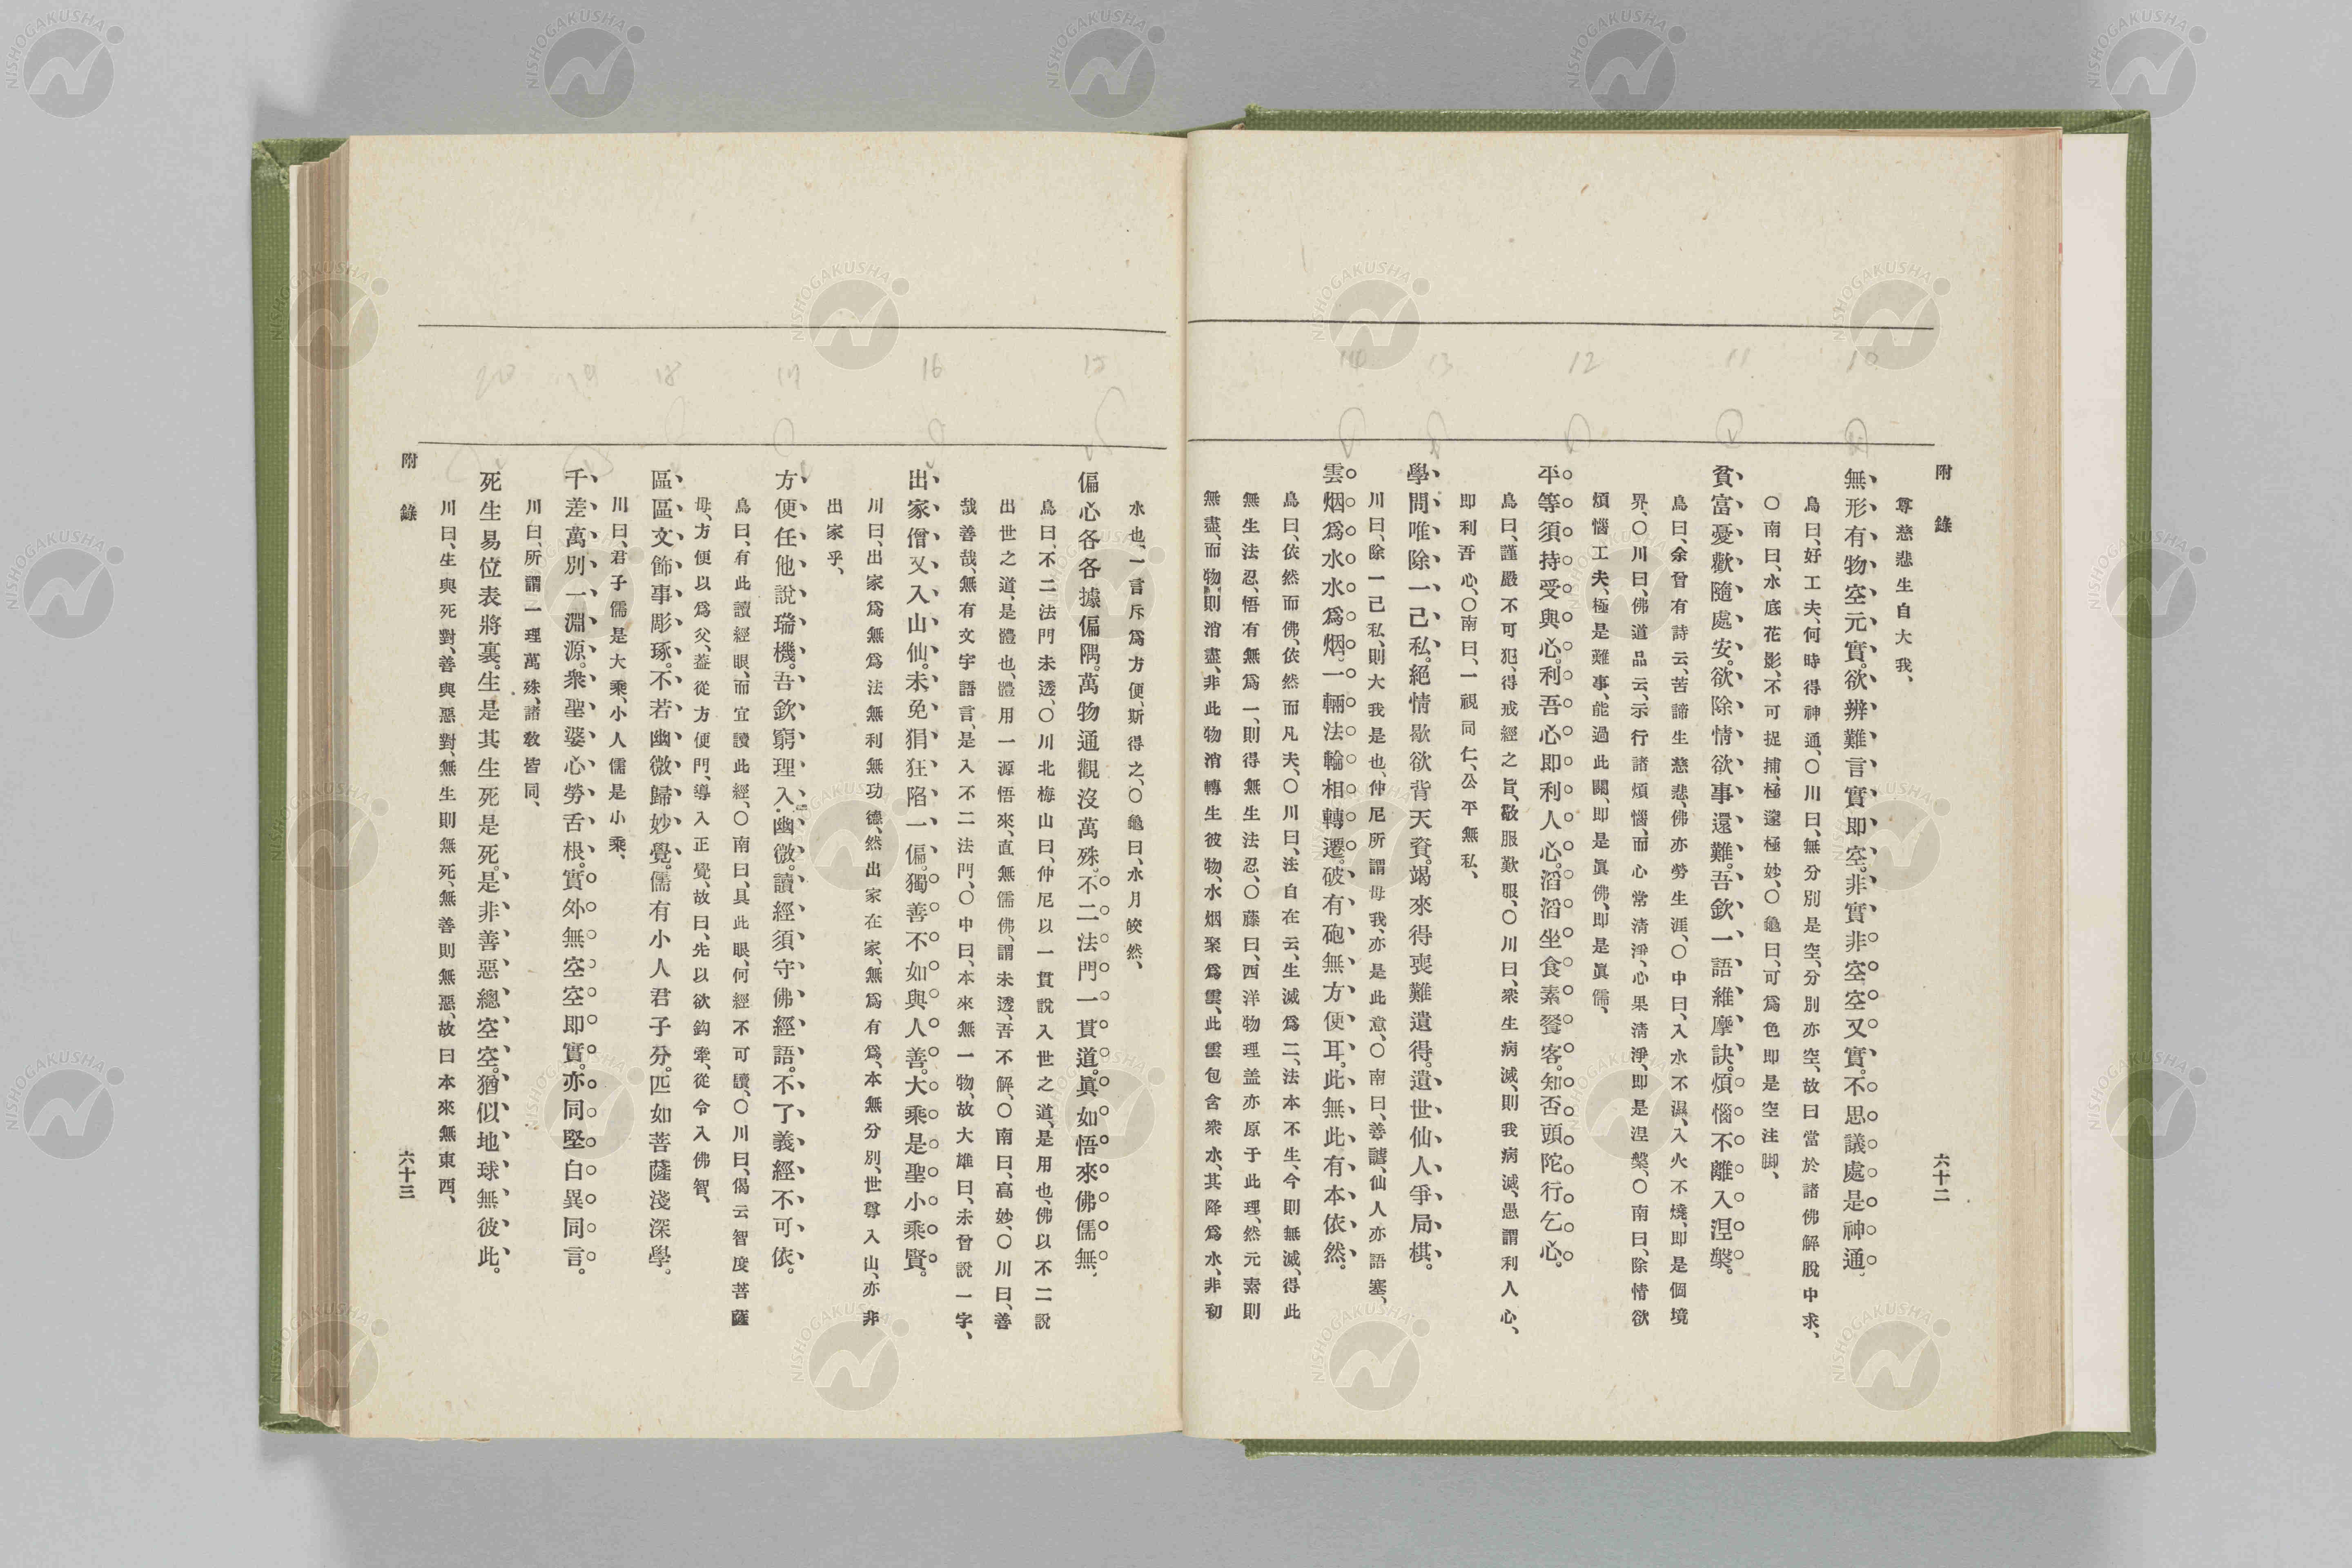 附錄
六十二
尊慈悲生自大我、
無形有物空元實。欲辨難言實即空。非實非空空又實。不思議處是神通。
鳥曰、好工夫、何時得神通、〇川曰、無分別是空、分別亦空、故曰當於諸佛解脫中求、
〇南曰、水底花影、不可捉捕、極邃極妙、〇龜曰、可爲色即是空注脚、
貧富憂歡隨處安。欲除情欲事還難。吾欽一語維摩訣。煩惱不離入涅槃。
鳥曰、余曾有詩云、苦諦生慈悲、佛亦勞生涯、〇中曰、入水不濕、入火不燒、即是個境
界、〇川曰、佛道品云、示行諸煩惱、而心常清淨、心果清淨、即是涅槃、〇南曰、除情欲
煩惱工夫、極是難事、能過此關、即是眞佛、即是眞儒、
平等須持受與心。利吾心即利人心。滔滔坐食素餐客。知否頭陀行乞心。
鳥曰、謹嚴不可犯、得戒經之旨、敬服歎服、〇川曰、衆生病滅、則我病滅、愚謂利人心、
即利吾心、〇南曰、一視同仁、公平無私、
學問唯除一己私。絕情歇欲背天資。竭來得喪難遺得。遺世仙人爭局棋。
川曰、除一己私、則大我是也、仲尼所謂毋我、亦是此意、〇南曰、善謔、仙人亦語塞、
雲烟爲水水爲烟。一輛法輪相轉遷。破有砲無方便耳。此無此有本依然。
鳥曰、依然而佛、依然而凡夫、〇川曰、法自在云、生滅爲二、法本不生、今則無滅、得此
無生法忍、悟有無爲一、則得無生法忍、〇藤曰、西洋物理盖亦原于此理、然元素則
無盡、而物則消盡、非此物消轉生彼物、水烟聚爲雲、此雲包含衆水、其降爲水、非初
水也、一言斥爲方便、斯得之、〇龜曰、水月皎然、
偏心各各據偏隅。萬物通觀沒萬殊。不二法門一貫道。眞如悟來佛儒無。
鳥曰、不二法門未透、〇川北梅山曰、仲尼以一貫說入世之道、是用也、佛以不二說
出世之道、是體也、體用一源悟來、直無儒佛、謂未透、吾不解、〇南曰、高妙、〇川曰、善
哉善哉、無有文字語言、是入不二法門、〇中曰、本來無一物、故大雄曰、未曾說一字、
出家僧又入山仙。未免狷狂陷一偏。獨善不如與人善。大乘是聖小乘賢。
川曰、出家爲無爲法無利無功德、然出家在家、無爲有爲、本無分別、世尊入山、亦非
出家乎、
方便任他說瑞機。吾欽窮理入幽微。讀經須守佛經語。不了義經不可依。
鳥曰、有此讀經眼、而宜讀此經、〇南曰、具此眼、何經不可讀、〇川曰、偈云智度菩薩
母、方便以爲父、葢從方便門、導入正覺、故曰、先以欲鈎牽、從令入佛智、
區區文飾事彫琢。不若幽微歸妙覺。儒有小人君子分。匹如菩薩淺深學。
川曰、君子儒是大乘、小人儒是小乘、
千差萬別一淵源。衆聖婆心勞舌根。實外無空空即實。亦同堅白異同言。
川曰、所謂一理萬殊、諸敎皆同、
死生易位表將裏。生是其生死是死。是非善惡總空空。猶似地球無彼此。
川曰、生與死對、善與惡對、無生則無死、無善則無惡、故曰本來無東西、
附錄
六十三
10
11
12
13
14
15
16
17
18
19
20
NISHOGAKUSHA